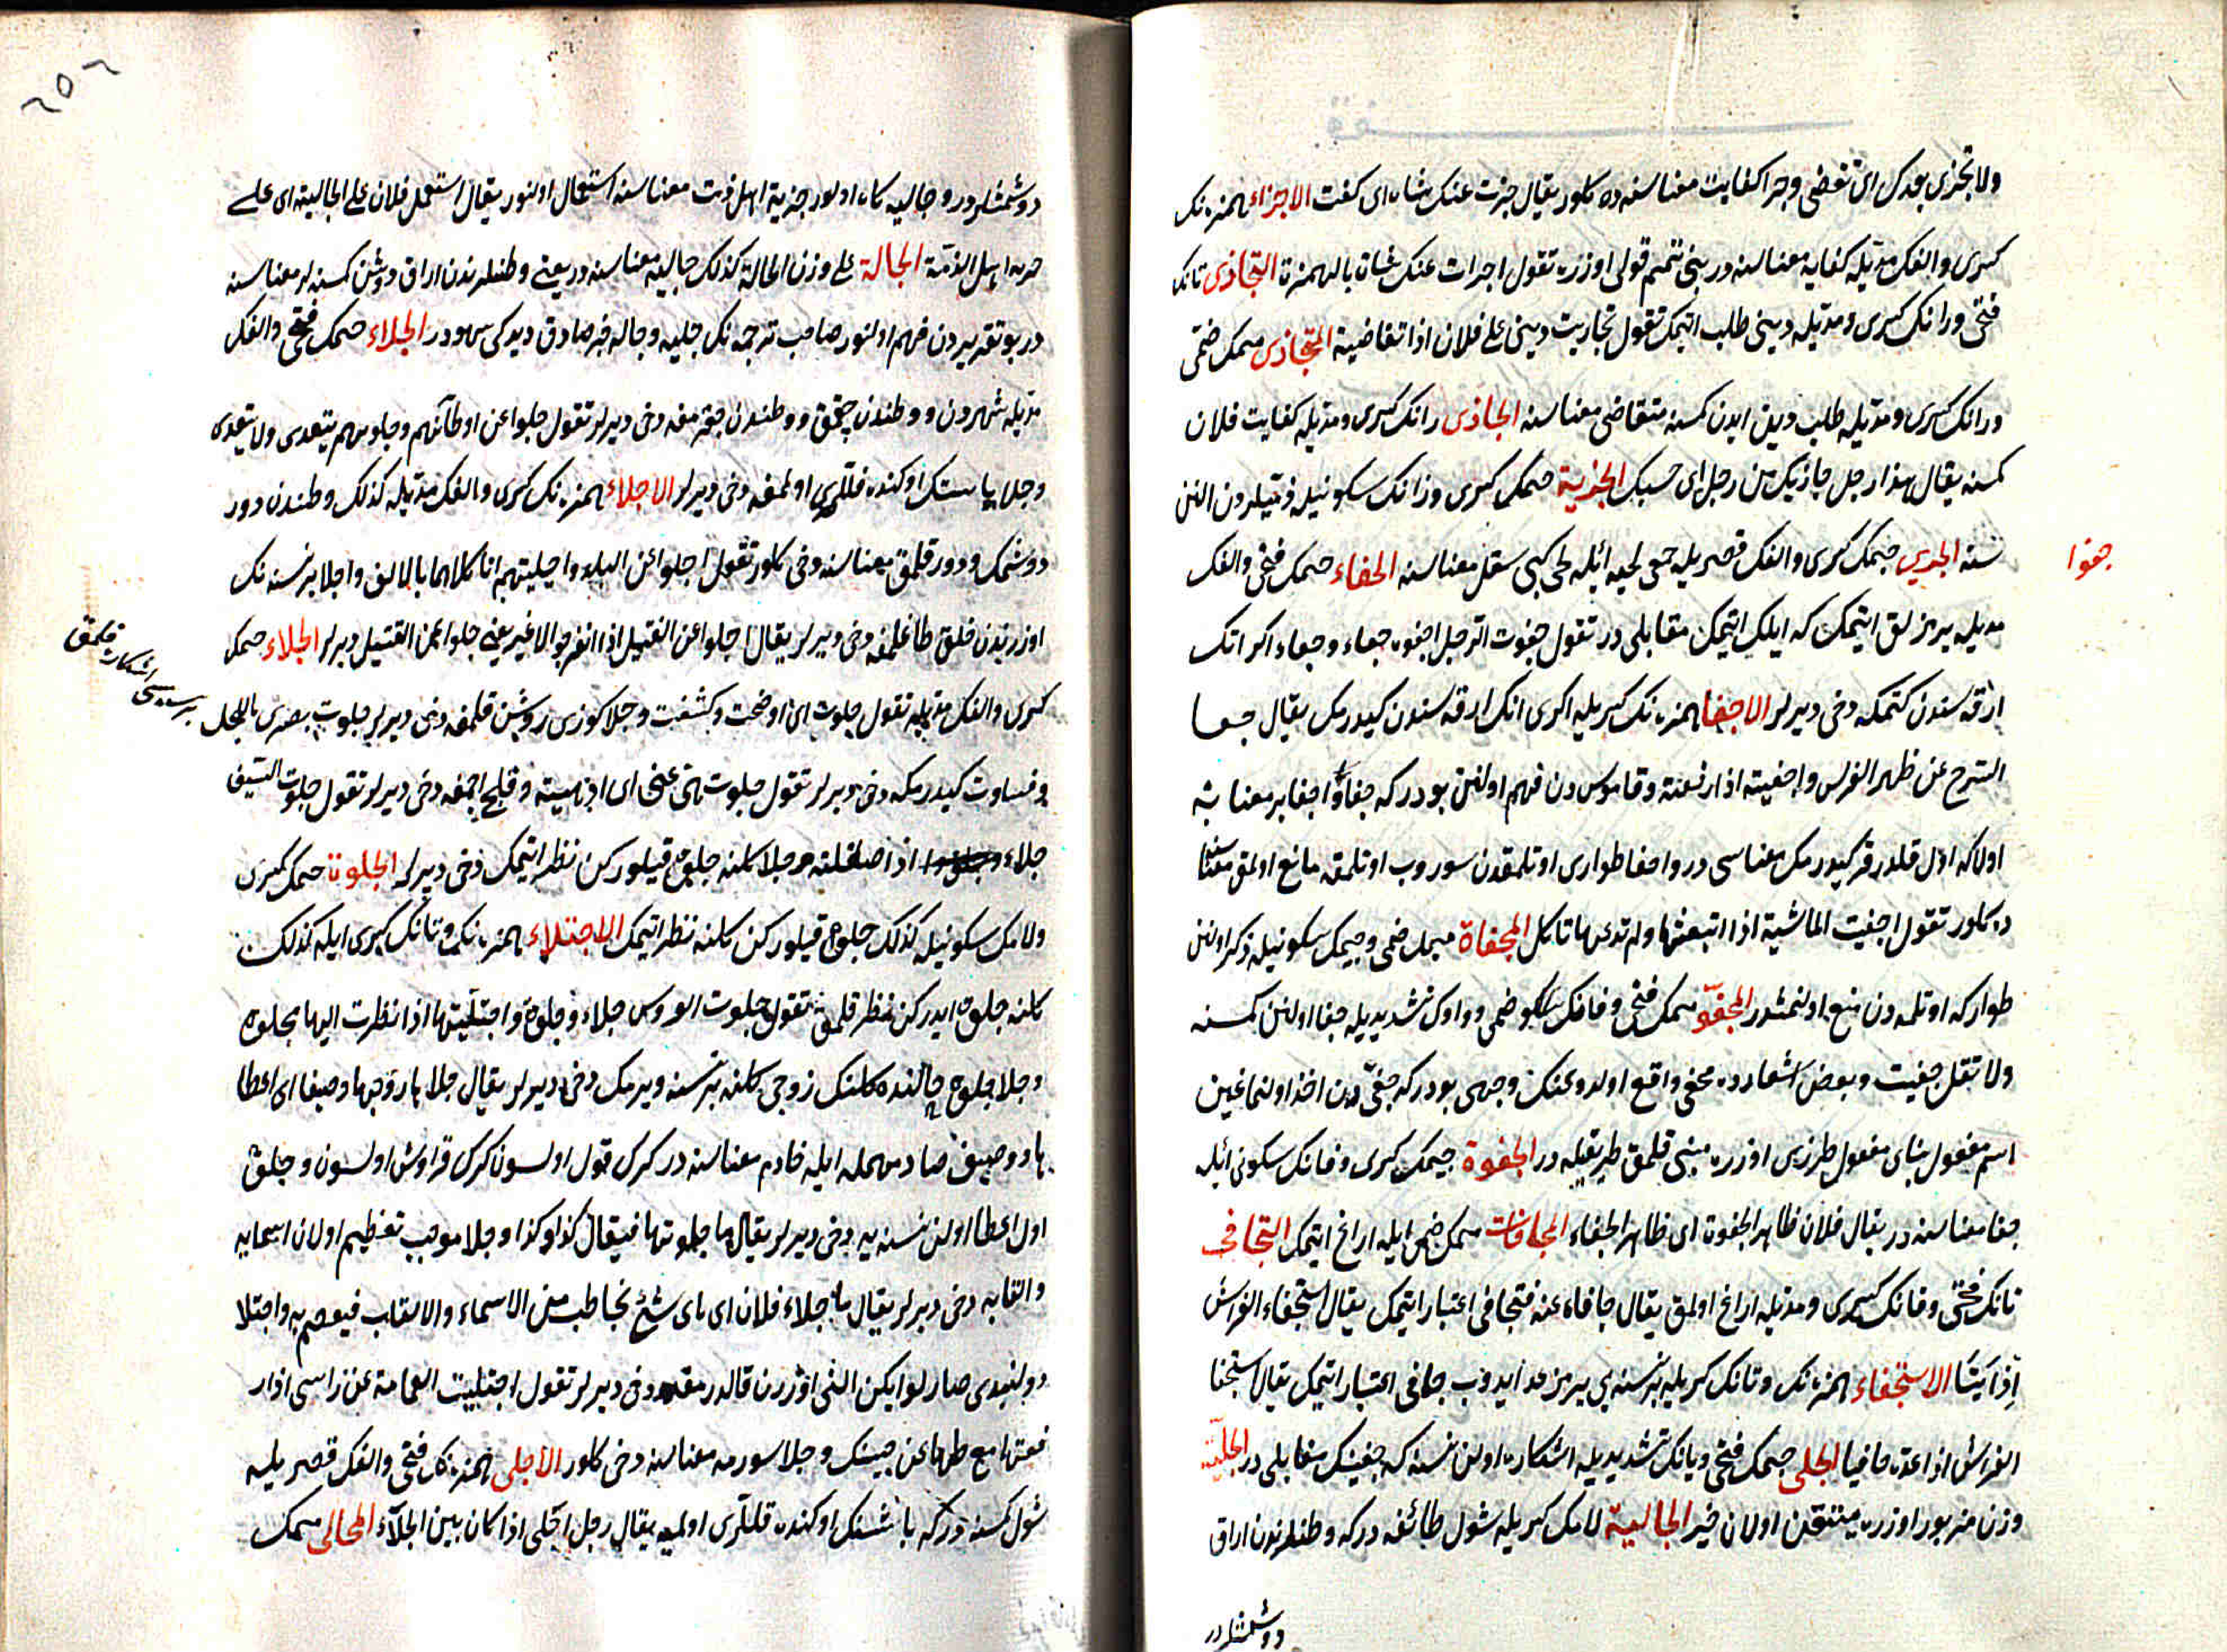 ولا تجزى بعدك اى تقضى وجزا كفايت معناسنه ده كلور يقال جزت عنك شاه اى كفت الاجزاء همزه نك
كسرى والفك مديله كفايه معناسنه در بنى تميم قولى اوزره تقول اجزات عنك شاة بالهمزة التجازى تانك
فتحى ورانك كسرى ومديله دينى طلب ايتمك تقول تجازيت دينى على فلان اذا تقاضيته المتجازى ميمك ضمى
ورانك كسرى ومديله طلب دين ايدن كمسنه متقاضى معناسنه الجازى رانك كسرى ومديله كفايت فلان
كمسنه يقال هذا رجل جازيك من رجل اى حسبك الجزية جيمك كسرى وزانك سكونيله ذميلردن النن
نسنه الجزى جيمك كسرى والفك قصريله جمعى لحيه ايله لحى كبى سقل معناسنه الجفاء جيمك فتحى والفك
جفوا
مديله يرمزلق ايتمك كه ايلك ايتمك مقابلى در تقول جفوت الرجل اجفوه جفاء وجفاء اكر اتك
ارقه سندن كتمكه دخى ديرلر الاجفا همزه نك كسريله اكرى اتك ارقه سندن كيدرمك يقال جفا
السرج عن ظهر الفرس واجفيته اذا رفعته وقاموس دن فهم اولنن بودر كه جفا واجفا بر معنا يه
اولا كه اول قلدرقر كيدرمك معناسى در واجفا طوارى اوتلمقدن سوروب اوتلمقه مانع اولمق
ده كلور تقول اجفيت الماشية اذا اتبعتها ولم تدعها تاكل المجفاة ميمك ضمى وجيمك سكونيله ذكر اولنن
طوار كه اوتلمه دن منع اولنمشدر المجفو ميمك فتحى وفانك ضمى وواوك تشديديله جفا اولنن كمسنه
ولا تقل جفيت وبعض اشعارده مجفى واقع اولدوغنك وجهى بودر كه جفى دن اخذ اولنماغين
اسم مفعول بناى مفعول طرزى اوزره مبنى قلمق طريقيله در الجفوة جيمك كسرى وفانك سكونى ايله
جفا معناسنه در يقال فلان ظاهر الجفوة اى ظاهر الجفاء المجافات ميمك ضمى ايله اراغ ايتمك التجافى
تانك فتحى وفانك كسرى ومديله اراغ اولمق يقال جافاه عنه فتجافى اعتبار ايتمك يقال استجفاء الفرش
الاستجفاء همزه نك وتانك كسريله بر نسنه يى يرمز عد ايدوب جافى اعتبار ايتمك يقال استجفا
الفراش اذا عده جافيا الجلى جيمك فتحى ويانك تشديديله اشكاره اولن نسنه كه جفينك مقابلى در الجلية
وزن مزبور اوزره متيقن اولان خبر الجالية لامك كسريله شول طائفه در كه وطنلرندن اراق
دوشمشلردر
٢٥٦
دوشمشلردر وجاليه كاه اولور جزية اهل ذمت معناسنه استعمال اولنور يقال استعمل فلان على الجالية اى على
جزية اهل الذمة الجالة على وزن الحالة كذلك جاليه معناسنه در يعنى وطنلرندن اراق دوشن كمسنه لر معناسنه
در بو تقريردن فهم اولنور صاحب ترجمه نك جليه وجاله خبر صادق ديدكى سهودر الجلاء جيمك فتحى والفك
مديله شهردن ووطندن چقمق ووطندن چقرمغه دخى ديرلر تقول جلوا عن اوطانهم وجلوتهم يتعدى ولا يتعدى
وجلا باستك اوكنده قللرى اولمغه دخى ديرلر الاجلاء همزه نك كسرى والفك مديله كذلك وطندن دور
دوشمك ودور قلمق معناسنه دخى كلور تقول اجلوا عن البلد واجليتهم انا كلاهما بالالف واجلا بر نسنه نك
اوزرندن خلق طاغلمغه دخى ديرلر يقال اجلوا عن القتيل اذا انفرجوا لا غير يعنى جلوا عن القتيل ديرلر الجلاء جيمك
كسرى والفك مديله تقول جلوت اى اوضحت وكشفت وجلا كوزى روشن قلمغه دخى ديرلر جلوت بصرى بالكحل
بر نسنه يى اشكاره قلمق
وقساوت كيدرمكه دخى ديرلر تقول جلوت همى عنى اى اذهبته وقلج اچمغه دخى ديرلر تقول جلوت السيف
جلاء اذا صقلته وجلا كلنه جلوه قيلوركن نظر ايتمك دخى ديرلر الجلوة جيمك كسرى
ولامك سكونيله كذلك جلوه قيلوركن كلنه نظر ايتمك الاجتلاء همزه نك وتانك كسرى ايله كذلك
كلنه جلوه ايدركن نظر قلمق تقول جلوت العروس جلاء وجلوة واجتليتها اذا نظرت اليها مجلوة
وجلا جلوه حالنده كلنك زوجى كلنه بر نسنه ويرمك دخى ديرلر يقال جلاها زوجها وصيفا اى اعطا
ها ووصيف صاد مهمله ايله خادم معناسنه در كرك قول اولسون كرك قراوش اولسون وجلوه
اول اعطا اولنن نسنه يه دخى ديرلر يقال ما جلوتها فيقال كذا وكذا وجلا موجب تعظيم اولان اسمايه
والقابه دخى ديرلر يقال ما جلاء فلان اى باى شئ يخاطب من الاسماء والالقاب فيعظم به واجتلا
دولبندى صارلو ايكن النى اوزرندن قالدرمغه دخى ديرلر تقول اجتليت العمامة عن راسى اذا ر
فعتها مع طيها عن جبينك وجلا سورمه معناسنه دخى كلور الاجلى همزه نك فتحى والفك قصريله
شول كمسنه در كه باشنك اوكنده قللرى اولميه يقال رجل اجلى اذا كان بين الجلاء المجالى ميمك